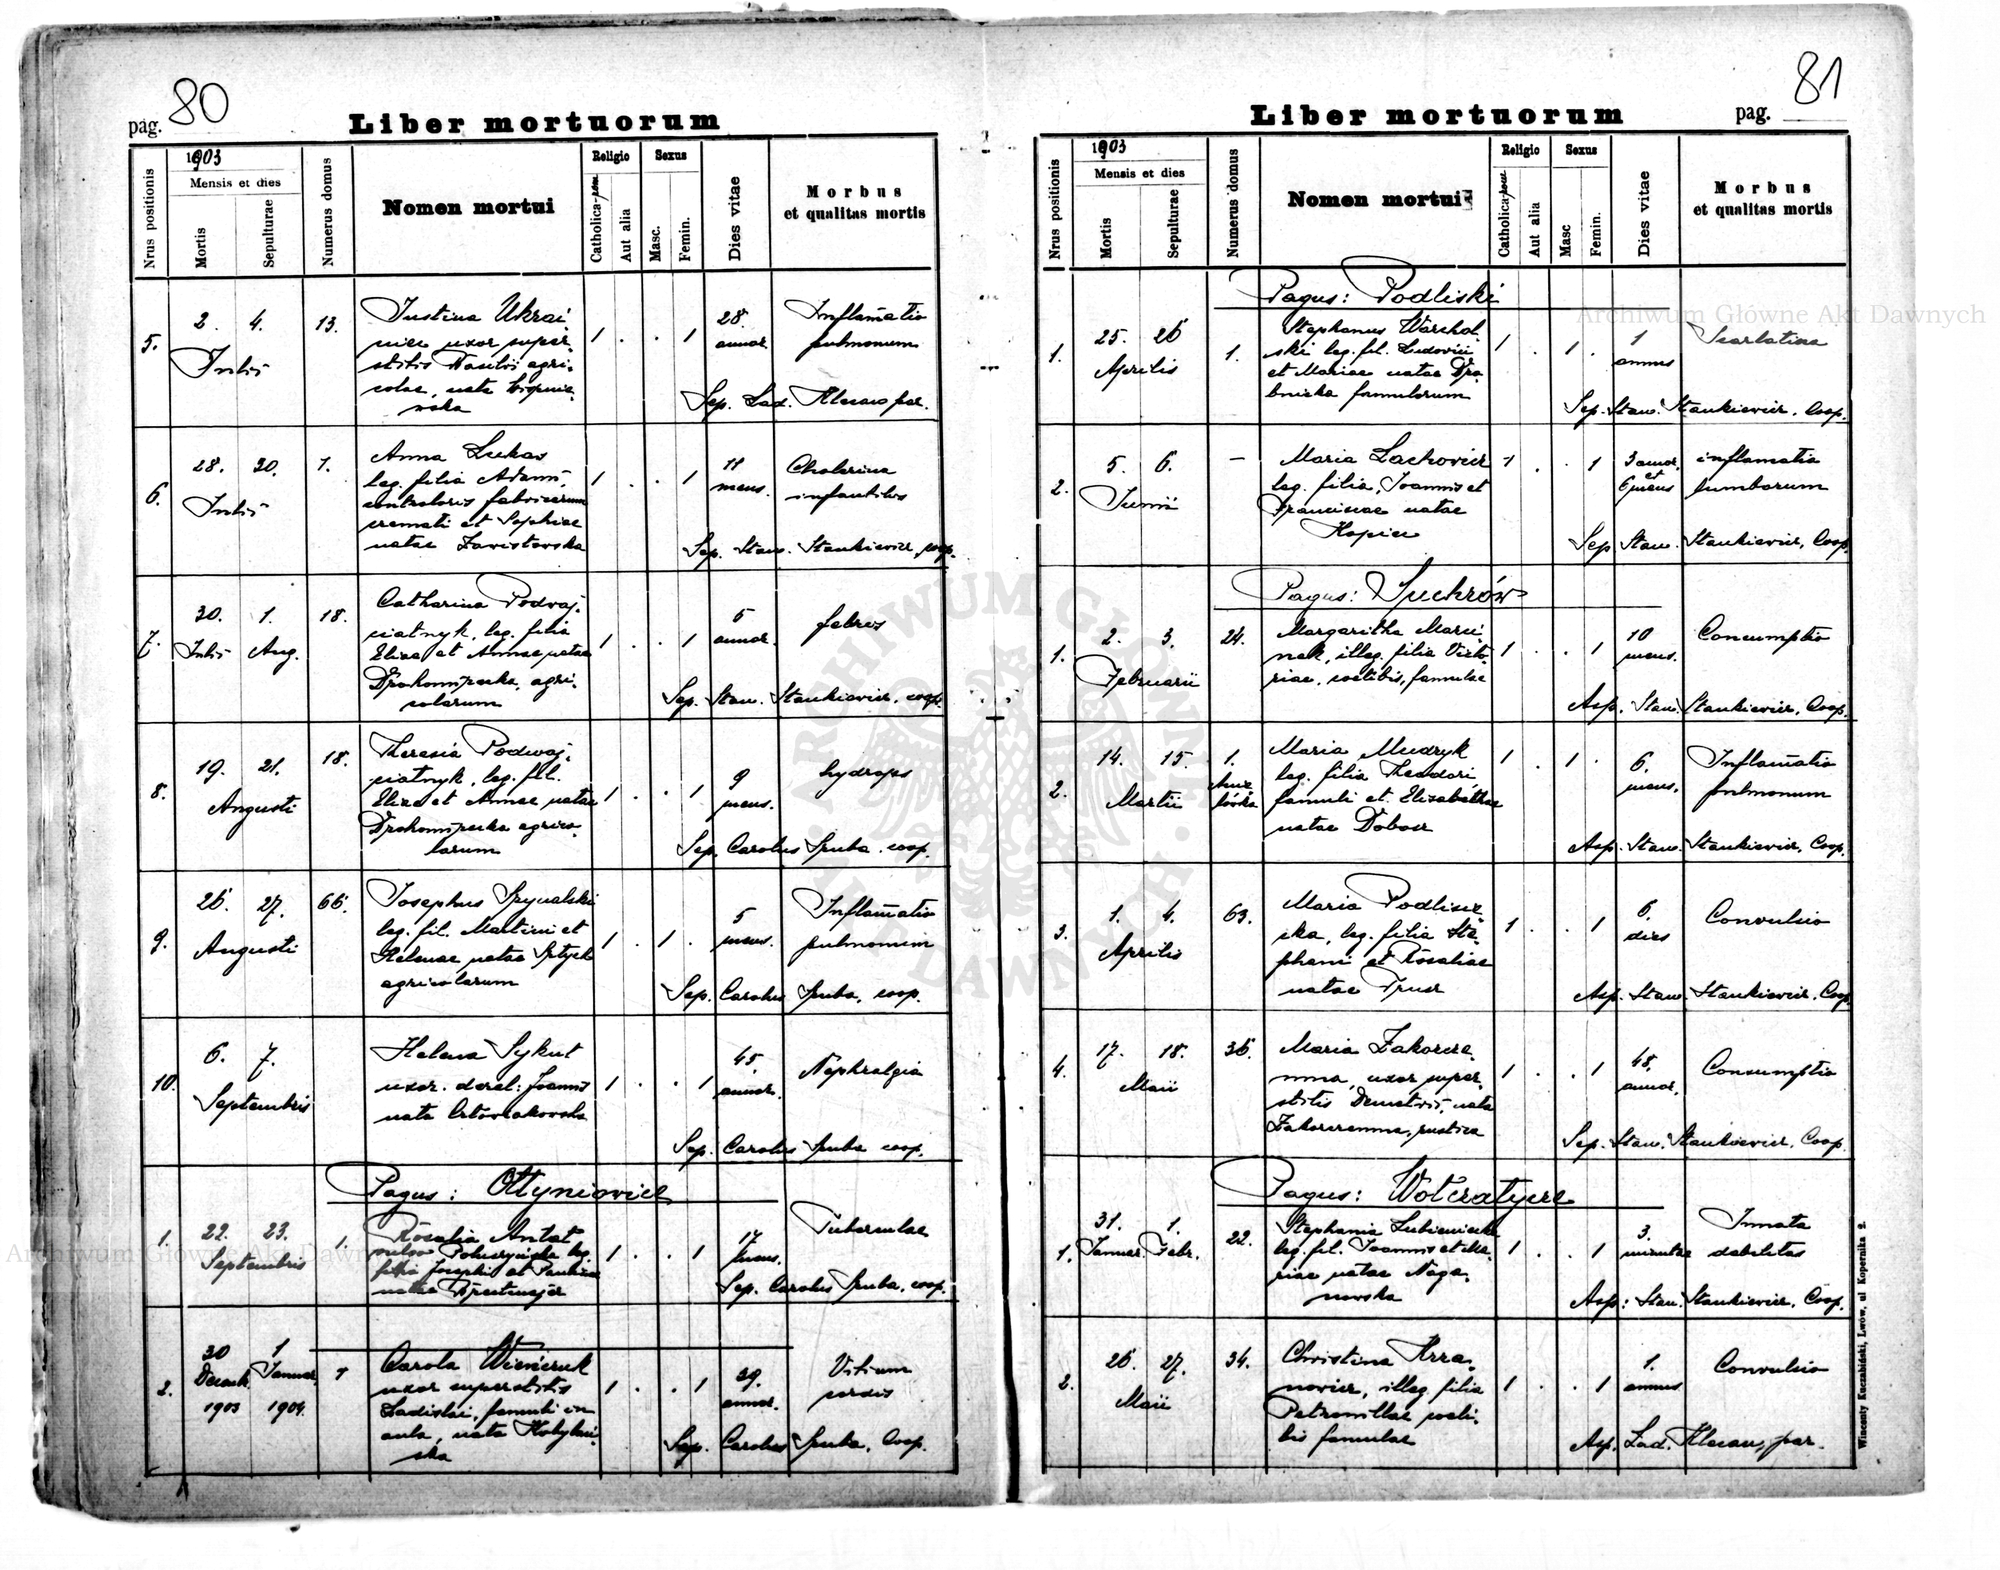 pag. 80
Liber mortuorum
Nrus positionis
1903
Mensis et dies
Mortis
Sepulturae
Numerus domus
Nomen mortui
Religio
Catholica
Aut alia
Sexus
Masc.
Femin.
Dies vitae
Morbus
et qualitas mortis
5. 2. 4. Julii 13.
Justina Ukrai-
niec uxor super-
stitis Basilii agri-
colae, nata
1 . . 1
28. annor.
Inflam̄atio
pulmonum
Sep. Lad. Klecan par.
6. 28. 30. Julii 1.
Anna Lukas
leg. filia Adami,
controloris fabricarum
cremati et Sophiae
natae Zavistovska
1 . . 1
11 mens.
Cholerina
infantilis
Sep. Stan. Stankievicz, coop.
7. 30. Julii 1. Aug. 18.
Catharina Podvaj-
ciatnyk, leg. filia
Eliae et Annae natae
Drohomirecka, agri-
colarum
1 . . 1
5 annor.
febris
Sep. Stan. Stankievicz, coop.
8. 19. 21. Augusti 18.
Theresia Podwaj-
ciatnyk, leg. fil.
Eliae et Annae, natae
Drohomirecka agrico-
larum
1 . . 1
9 mens.
hydrops
Sep. Carolus Spuba, coop.
9. 26. 27. Augusti 66.
Josephus Szynalski
leg. fil. Martini et
Helenae natae
agricolarum
1 . 1 .
5 mens.
Inflam̄atio
pulmonum
Sep. Carolus Spuba, coop.
10. 6. 7. Septembris
Helena Sykut
uxor. derel: Joannis
nata
1 . . 1
45. annor.
Nephralgia
Sep. Carolus Spuba coop.
Pagus: Ottyniovice
1. 22. 23. Septembris 1.
Rosalia Antat
leg.
filia Josephi et Paulinae
natae
1 . . 1
17 mens.
Tuberculae
Sep. Carolus Spuba, coop.
2. 30 Decemb. 1903 1 Januar. 1904. 1
Carola Wieńczuk
uxor superstitis
Ladislai, famuli in
aula, nata Kobylań-
ska
1 . . 1
29. annor.
Vitium
cordis
Sep. Carolus Spuba, Coop.
Liber mortuorum
pag. 81
Nrus positionis
1903
Mensis et dies
Mortis
Sepulturae
Numerus domus
Nomen mortui
Religio
Catholica
Aut alia
Sexus
Masc
Femin.
Dies vitae
Morbus
et qualitas mortis
Pagus: Podliski
1. 25. 26 Aprilis 1.
Stephanus Warchol-
ski leg. fil. Ludovici
et Mariae natae Dra-
bnicka famulorum
1 . 1 .
1 annus
Scarlatina
Sep. Stan. Stankievicz, Coop.
2. 5. 6. Junii –
Maria Lachovicz
leg. filia, Joannis et
Franciscae natae
Kopiec
1 . . 1
3 annor. et 6 mens
inflamatio
lumborum
Sep Stan. Stankievicz, Coop.
Pagus: Suchrów
1. 2. 3. Februarii 24.
Margaritha Marci-
nek, illeg. filia Victo-
riae, coelibis, famulae
1 . . 1
10 mens.
Consumptio
Asp. Stan. Stankievicz, Coop.
2. 14. 15. Martii 1.
Maria Mudryk
leg. filia Theodori
famuli et Elizabethae
natae Dobosz
1 . 1 .
6. mens.
Inflam̄atio
pulmonum
Asp. Stan. Stankievicz, Coop.
3. 1. 4. Aprilis 63.
Maria Podlisec-
cka, leg. filia Ste-
phani et Rosaliae
natae Prusz
1 . . 1
6. dies
Convulsio
Asp. Stan. Stankievicz, Coop.
4. 17. 18. Maii 36.
Maria Zakorcze-
mna, uxor super-
stitis Demetrii, nata
Zakorczemna, rustica
1 . . 1
48. annor.
Consumptio
Sep. Stan. Stankievicz, Coop
Pagus: Wołczatycze
1. 31. Januar. 1. Febr. 22.
Stephania Lubieniecka
leg. fil. Joannis et Ma-
riae natae Naga-
novska
1 . . 1
3. minutae
Innata
debilitas
Asp: Stan. Stankievicz, Coop.
2. 26. 27. Maii 34.
Christina Krza-
novicz, illeg. filia
Petronillae coeli-
bis famulae
1 . . 1
1. annus
Convulsio
Asp. Lad. Klecan, par.
Wincenty Kuczabiński, Lwów, ul Kopernika 2.
Archiwum Główne Akt Dawnych
Archiwum Główne Akt Dawnych
ARCHIWUM GŁÓWNE AKT DAWNYCH